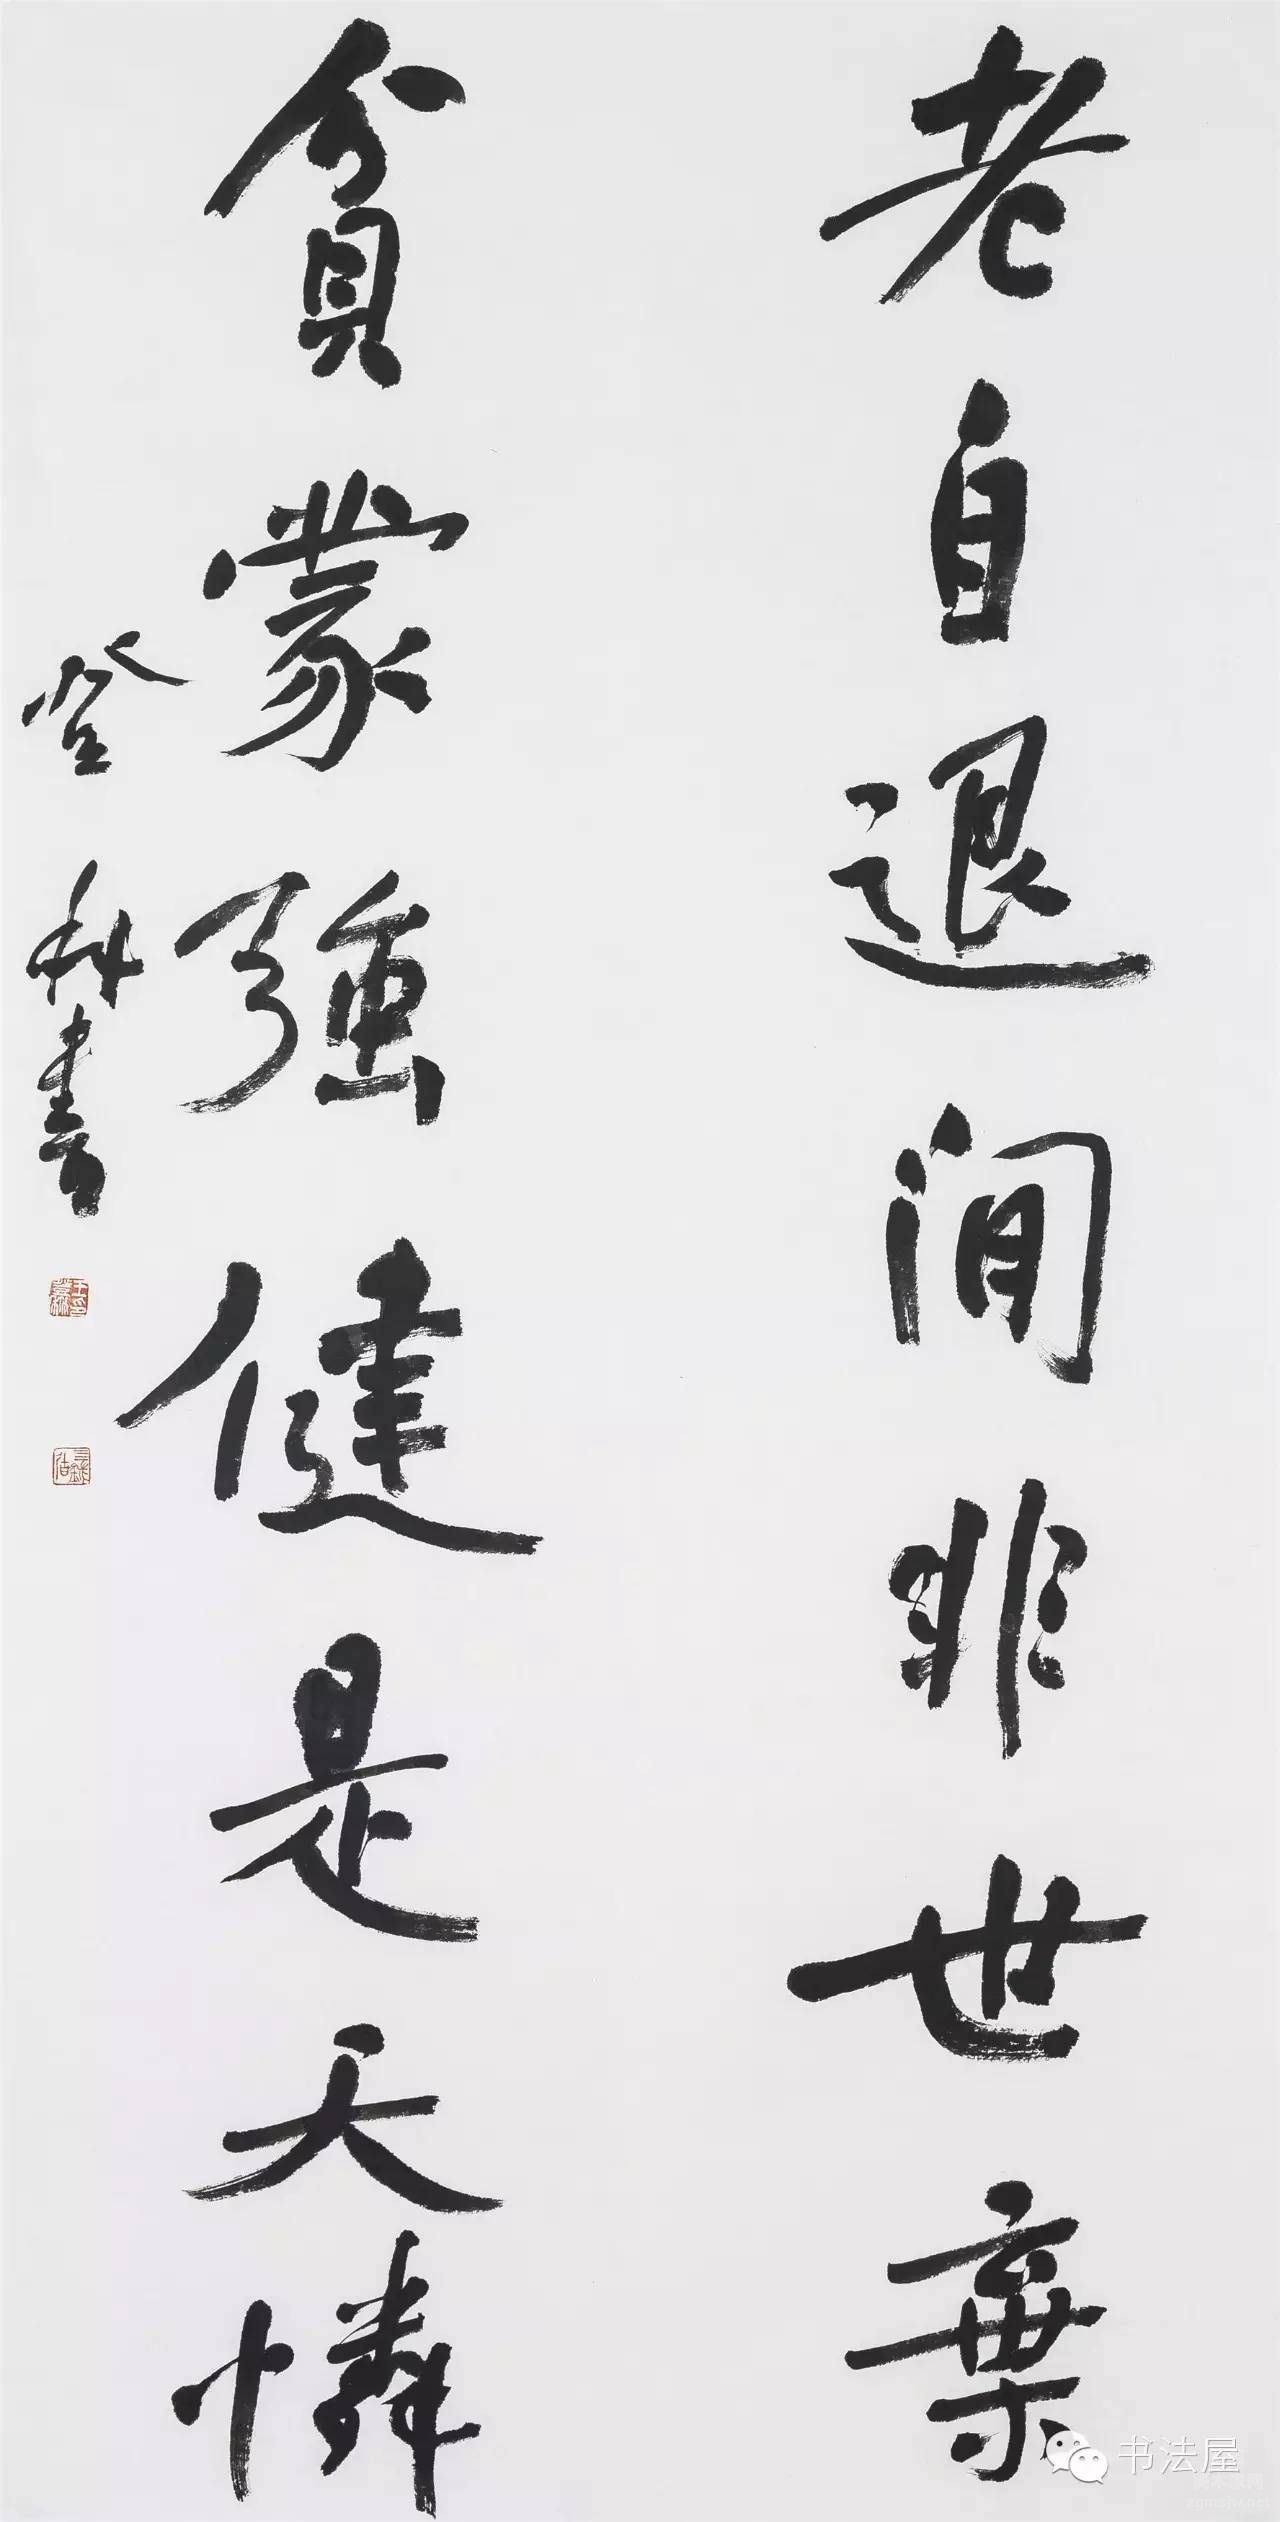 老自退閒非世棄
貧蒙強健是天憐
登科書
书法屋